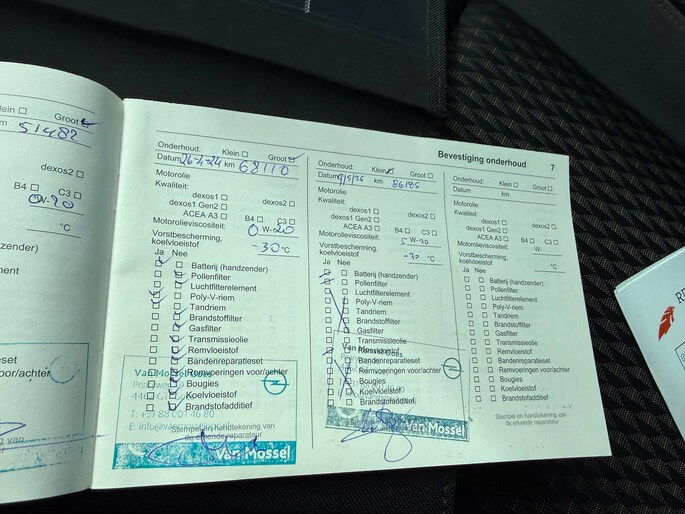 lein ☐ Groot ☑
m 51482
dexos2 ☐
B4 ☐ C3 ☐
0W-20
°C
zender)
ment
sset
voor/achter
g van
Bevestiging onderhoud 7
Onderhoud: Klein ☐ Groot ☑
Datum 26-4-24 km 68110
Motorolie
Kwaliteit:
dexos1 ☐
dexos1 Gen2 ☐ dexos2 ☐
ACEA A3 ☐ B4 ☐ C3 ☐
Motorolieviscositeit: 0 W-20
Vorstbescherming,
koelvloeistof -30 °C
Ja Nee
Batterij (handzender)
Pollenfilter
Luchtfilterelement
Poly-V-riem
Tandriem
Brandstoffilter
Gasfilter
Transmissieolie
Remvloeistof
Bandenreparatieset
Remvoeringen voor/achter
Bougies
Koelvloeistof
Brandstofadditief
Van Mossel Goes
T: +31 88 001 46 80
Stempel en handtekening van
de erkende reparateur
Van Mossel
Onderhoud: Klein ☑ Groot ☐
Datum 9/5/25 km 86185
Motorolie
Kwaliteit:
dexos1 ☐
dexos1 Gen2 ☐ dexos2 ☐
ACEA A3 ☐ B4 ☐ C3 ☐
Motorolieviscositeit: 5 W-30
Vorstbescherming,
koelvloeistof °C
Ja Nee
Batterij (handzender)
Pollenfilter
Luchtfilterelement
Poly-V-riem
Tandriem
Brandstoffilter
Gasfilter
Transmissieolie
Remvloeistof
Bandenreparatieset
Remvoeringen voor/achter
Bougies
Koelvloeistof
Brandstofadditief
Van Mossel
Onderhoud: Klein ☐ Groot ☐
Datum km
Motorolie
Kwaliteit:
dexos1 ☐
dexos1 Gen2 ☐ dexos2 ☐
ACEA A3 ☐ B4 ☐ C3 ☐
Motorolieviscositeit: W-
Vorstbescherming,
koelvloeistof °C
Ja Nee
Batterij (handzender)
Pollenfilter
Luchtfilterelement
Poly-V-riem
Tandriem
Brandstoffilter
Gasfilter
Transmissieolie
Remvloeistof
Bandenreparatieset
Remvoeringen voor/achter
Bougies
Koelvloeistof
Brandstofadditief
Stempel en handtekening van
de erkende reparateur